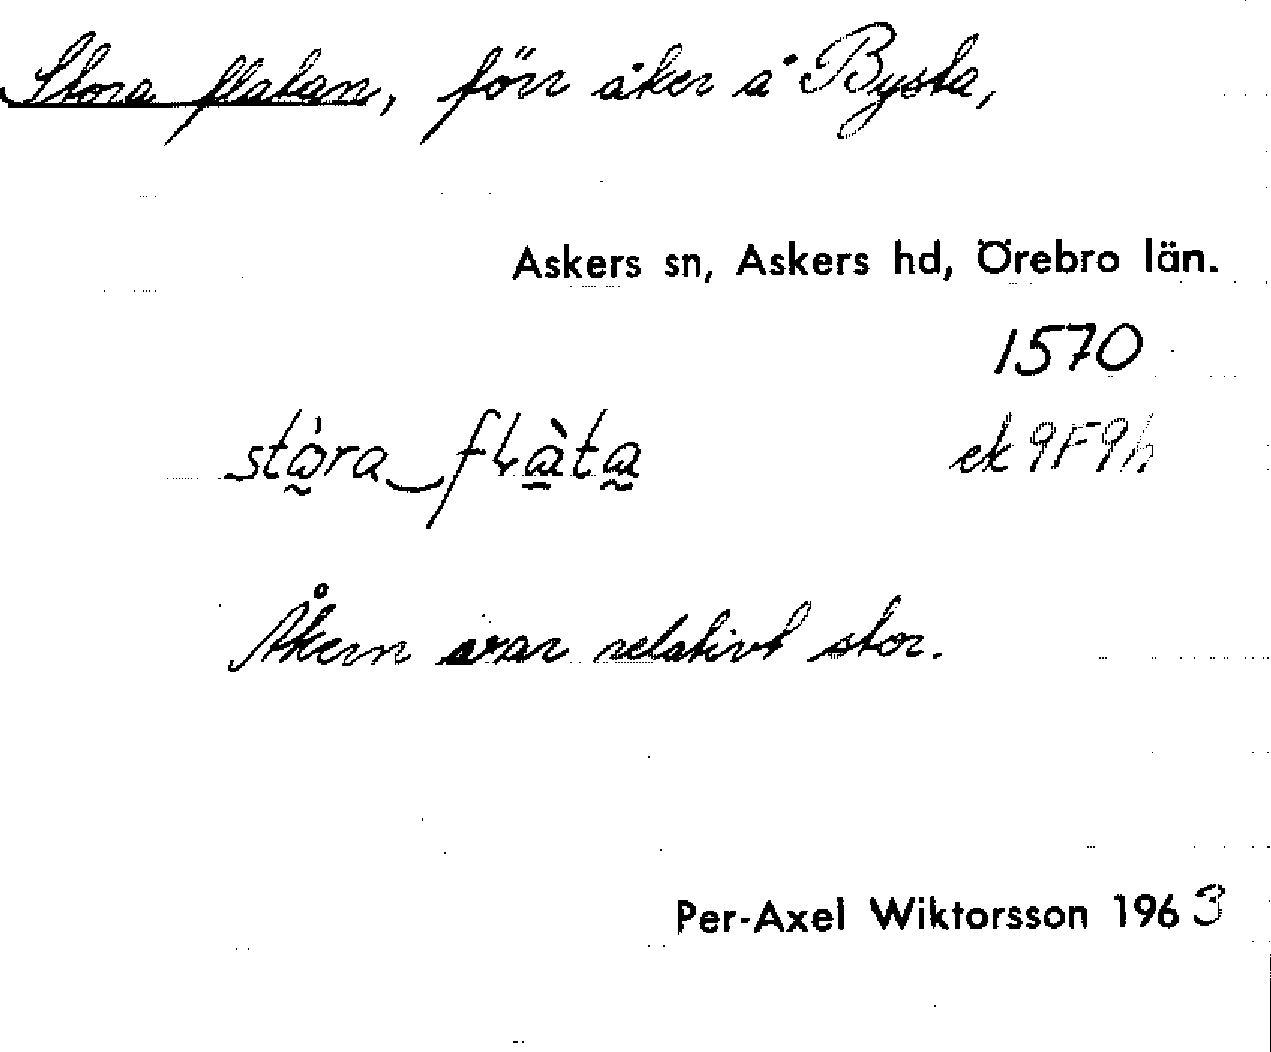 Stora flatan, förr åker å Bysta,
Askers sn, Askers hd, Örebro län.
1570
ek 9F9h
Åkern var relativt stor.
Per-Axel Wiktorsson 1963